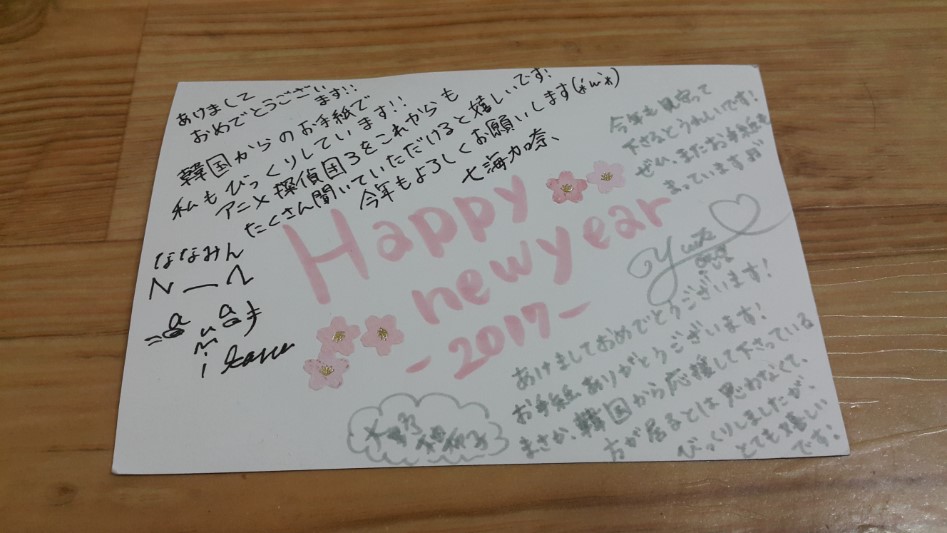 あけまして
おめでとうござい
ます!!
韓国からのお手紙で
私もびっくりしています!!
アニメ探偵団3をこれからも
たくさん聞いていただけると嬉しいです!
今年もよろしくお願いします(*'ω'*)
七海カ奈、
ななみん
Happy
new year
-2017-
今年も見守って
下さるとうれしいです!
ぜひ、またお手紙も
まっていますが
あけましておめでとうございます!
お手紙ありがとうございます!
まさか、韓国から応援して下さっている
方が居るとは思わなくて、
びっくりしましたが、
とても嬉しい
です。